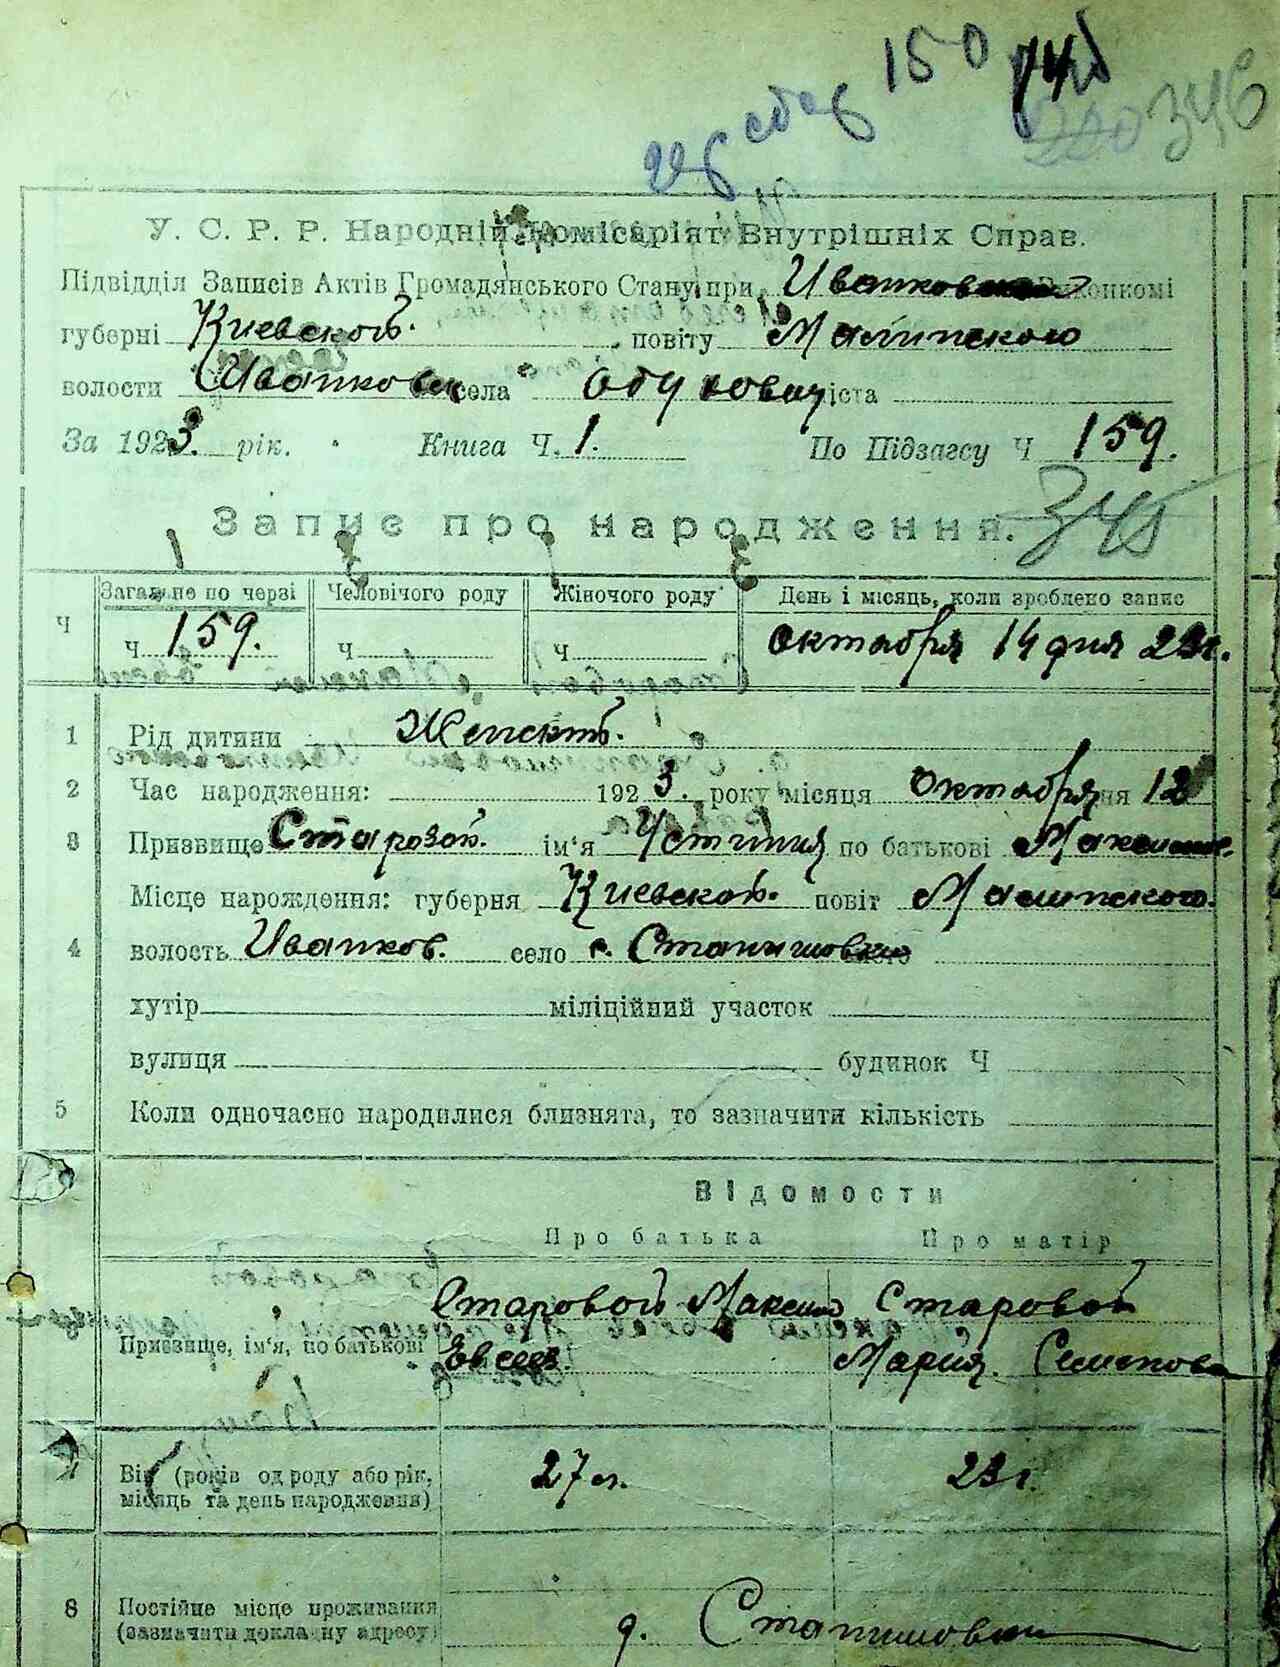 150
346
У. С. Р. Р. Народній Комісаріят Внутрішніх Справ.
Підвідділ Записів Актів Громадянського Стану при Иванковском Виконкомі
губерні Киевской. повіту Малинского
волости Иванковск села Обуховичи міста
За 1923. рік. Книга Ч. 1. По Підзагсу Ч 159.
Запис про народження. 345
Загальне по черзі Человічого роду Жіночого роду День і місяць, коли зроблено запис
Ч Ч 159. Ч Ч Октября 14 дня 23г.
1 Рід дитини Женский.
2 Час народження: 1923. року місяця Октября дня 12
3 Призвище Старовой. ім'я Устиния по батькові Максимов.
Місце нарождення: губерня Киевской. повіт Малинского.
4 волость Иванков. село с. Станишовка місто
хутір міліційний участок
вулиця будинок Ч
5 Коли одночасно народилися близнята, то зазначити кількість
Відомости
Про батька Про матір
Старовой Максим Старовой
Призвище, ім'я, по батькові Евсеев. Мария. Семенова
7 Вік (років од роду або рік, 27 л. 23 г.
місяць та день народження)
8 Постійне місце проживання
(зазначити докладну адресу) д. Станишовки